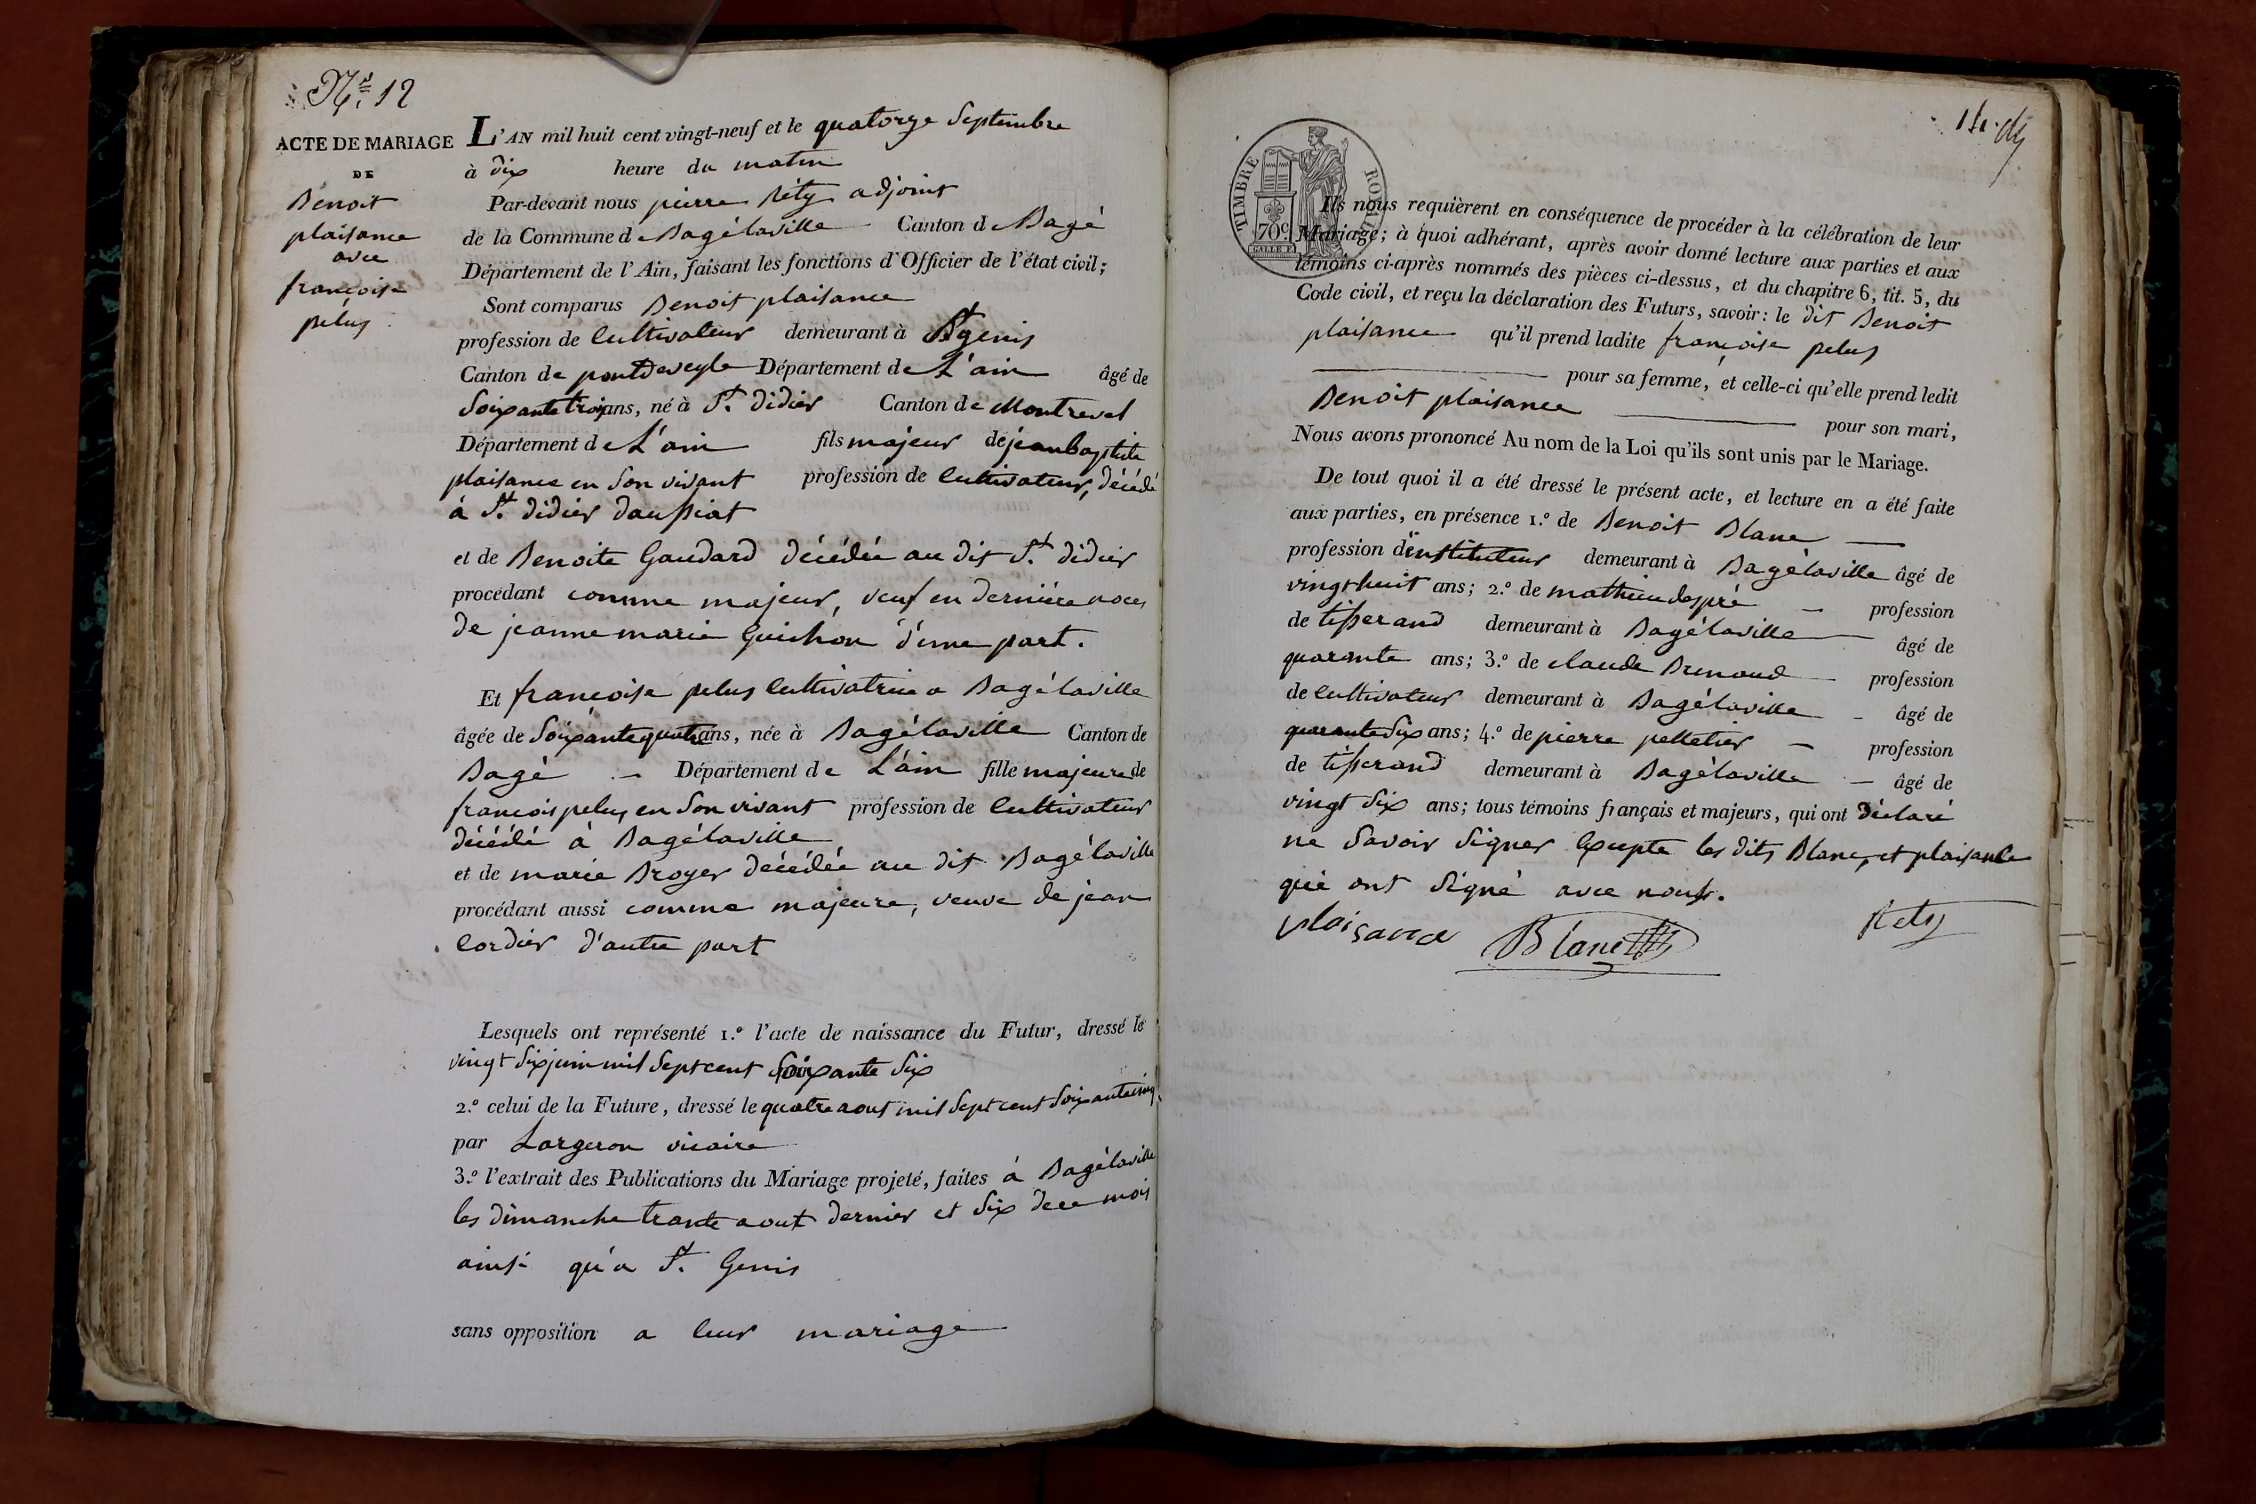 N.º 12
ACTE DE MARIAGE
DE
Benoit
plaisance
avec
françoise
pelus
L'AN mil huit cent vingt-neuf et le quatorze Septembre
à dix heure du matin
Par-devant nous pierre Réty adjoint
de la Commune d Bagélaville Canton d Bagé
Département de l'Ain, faisant les fonctions d'Officier de l'état civil;
Sont comparus Benoit plaisance
profession de Cultivateur demeurant à St genis
Canton de pontdeveyle Département de L'ain âgé de
Soixante trois ans, né à St. didier Canton de Montrevel
Département de L'ain fils majeur de jean baptiste
plaisance en Son vivant profession de Cultivateur, décédé
à St. didier daussiat
et de Benoite Gaudard décédée au dit St. didier
procédant comme majeur, veuf en dernière noces
de jeanne marie Guichon d'une part.
Et françoise pelus Cultivatrice a Bagélaville
âgée de Soixante quatre ans, née à Bagélaville Canton de
Bagé Département de L'ain fille majeure de
françois pelus en Son vivant profession de Cultivateur
décédé à Bagélaville
et de marie Broyer décédée au dit Bagélaville
procédant aussi comme majeure, veuve de jean
Cordier d'autre part
Lesquels ont représenté 1.º l'acte de naissance du Futur, dressé le
vingt Six juin mil Sept cent Soixante Six
2.º celui de la Future, dressé le quatre aout mil Sept cent Soixante cinq
par Largeron vicaire
3.º l'extrait des Publications du Mariage projeté, faites à Bagélaville
les dimanche trante aout dernier et Six de ce mois
ainsi qu'a St. Genis
sans opposition a leur mariage
TIMBRE ROYAL
70c
Ils nous requièrent en conséquence de procéder à la célébration de leur
Mariage; à quoi adhérant, après avoir donné lecture aux parties et aux
témoins ci-après nommés des pièces ci-dessus, et du chapitre 6, tit. 5, du
Code civil, et reçu la déclaration des Futurs, savoir: le dit Benoit
plaisance qu'il prend ladite françoise pelus
pour sa femme, et celle-ci qu'elle prend ledit
Benoit plaisance pour son mari,
Nous avons prononcé Au nom de la Loi qu'ils sont unis par le Mariage.
De tout quoi il a été dressé le présent acte, et lecture en a été faite
aux parties, en présence 1.º de Benoit Blanc
profession d'instituteur demeurant à Bagélaville âgé de
vingt huit ans; 2.º de mathieu despré profession
de tisserand demeurant à Bagélaville âgé de
quarante ans; 3.º de claude Brunaud profession
de Cultivateur demeurant à Bagélaville âgé de
quarante Six ans; 4.º de pierre pelletier profession
de tisserand demeurant à Bagélaville âgé de
vingt Six ans; tous témoins français et majeurs, qui ont déclaré
ne Savoir Signer Excepte les dits Blanc, et plaisance
qui ont Signé avec nous.
plaisance Blanc Rety